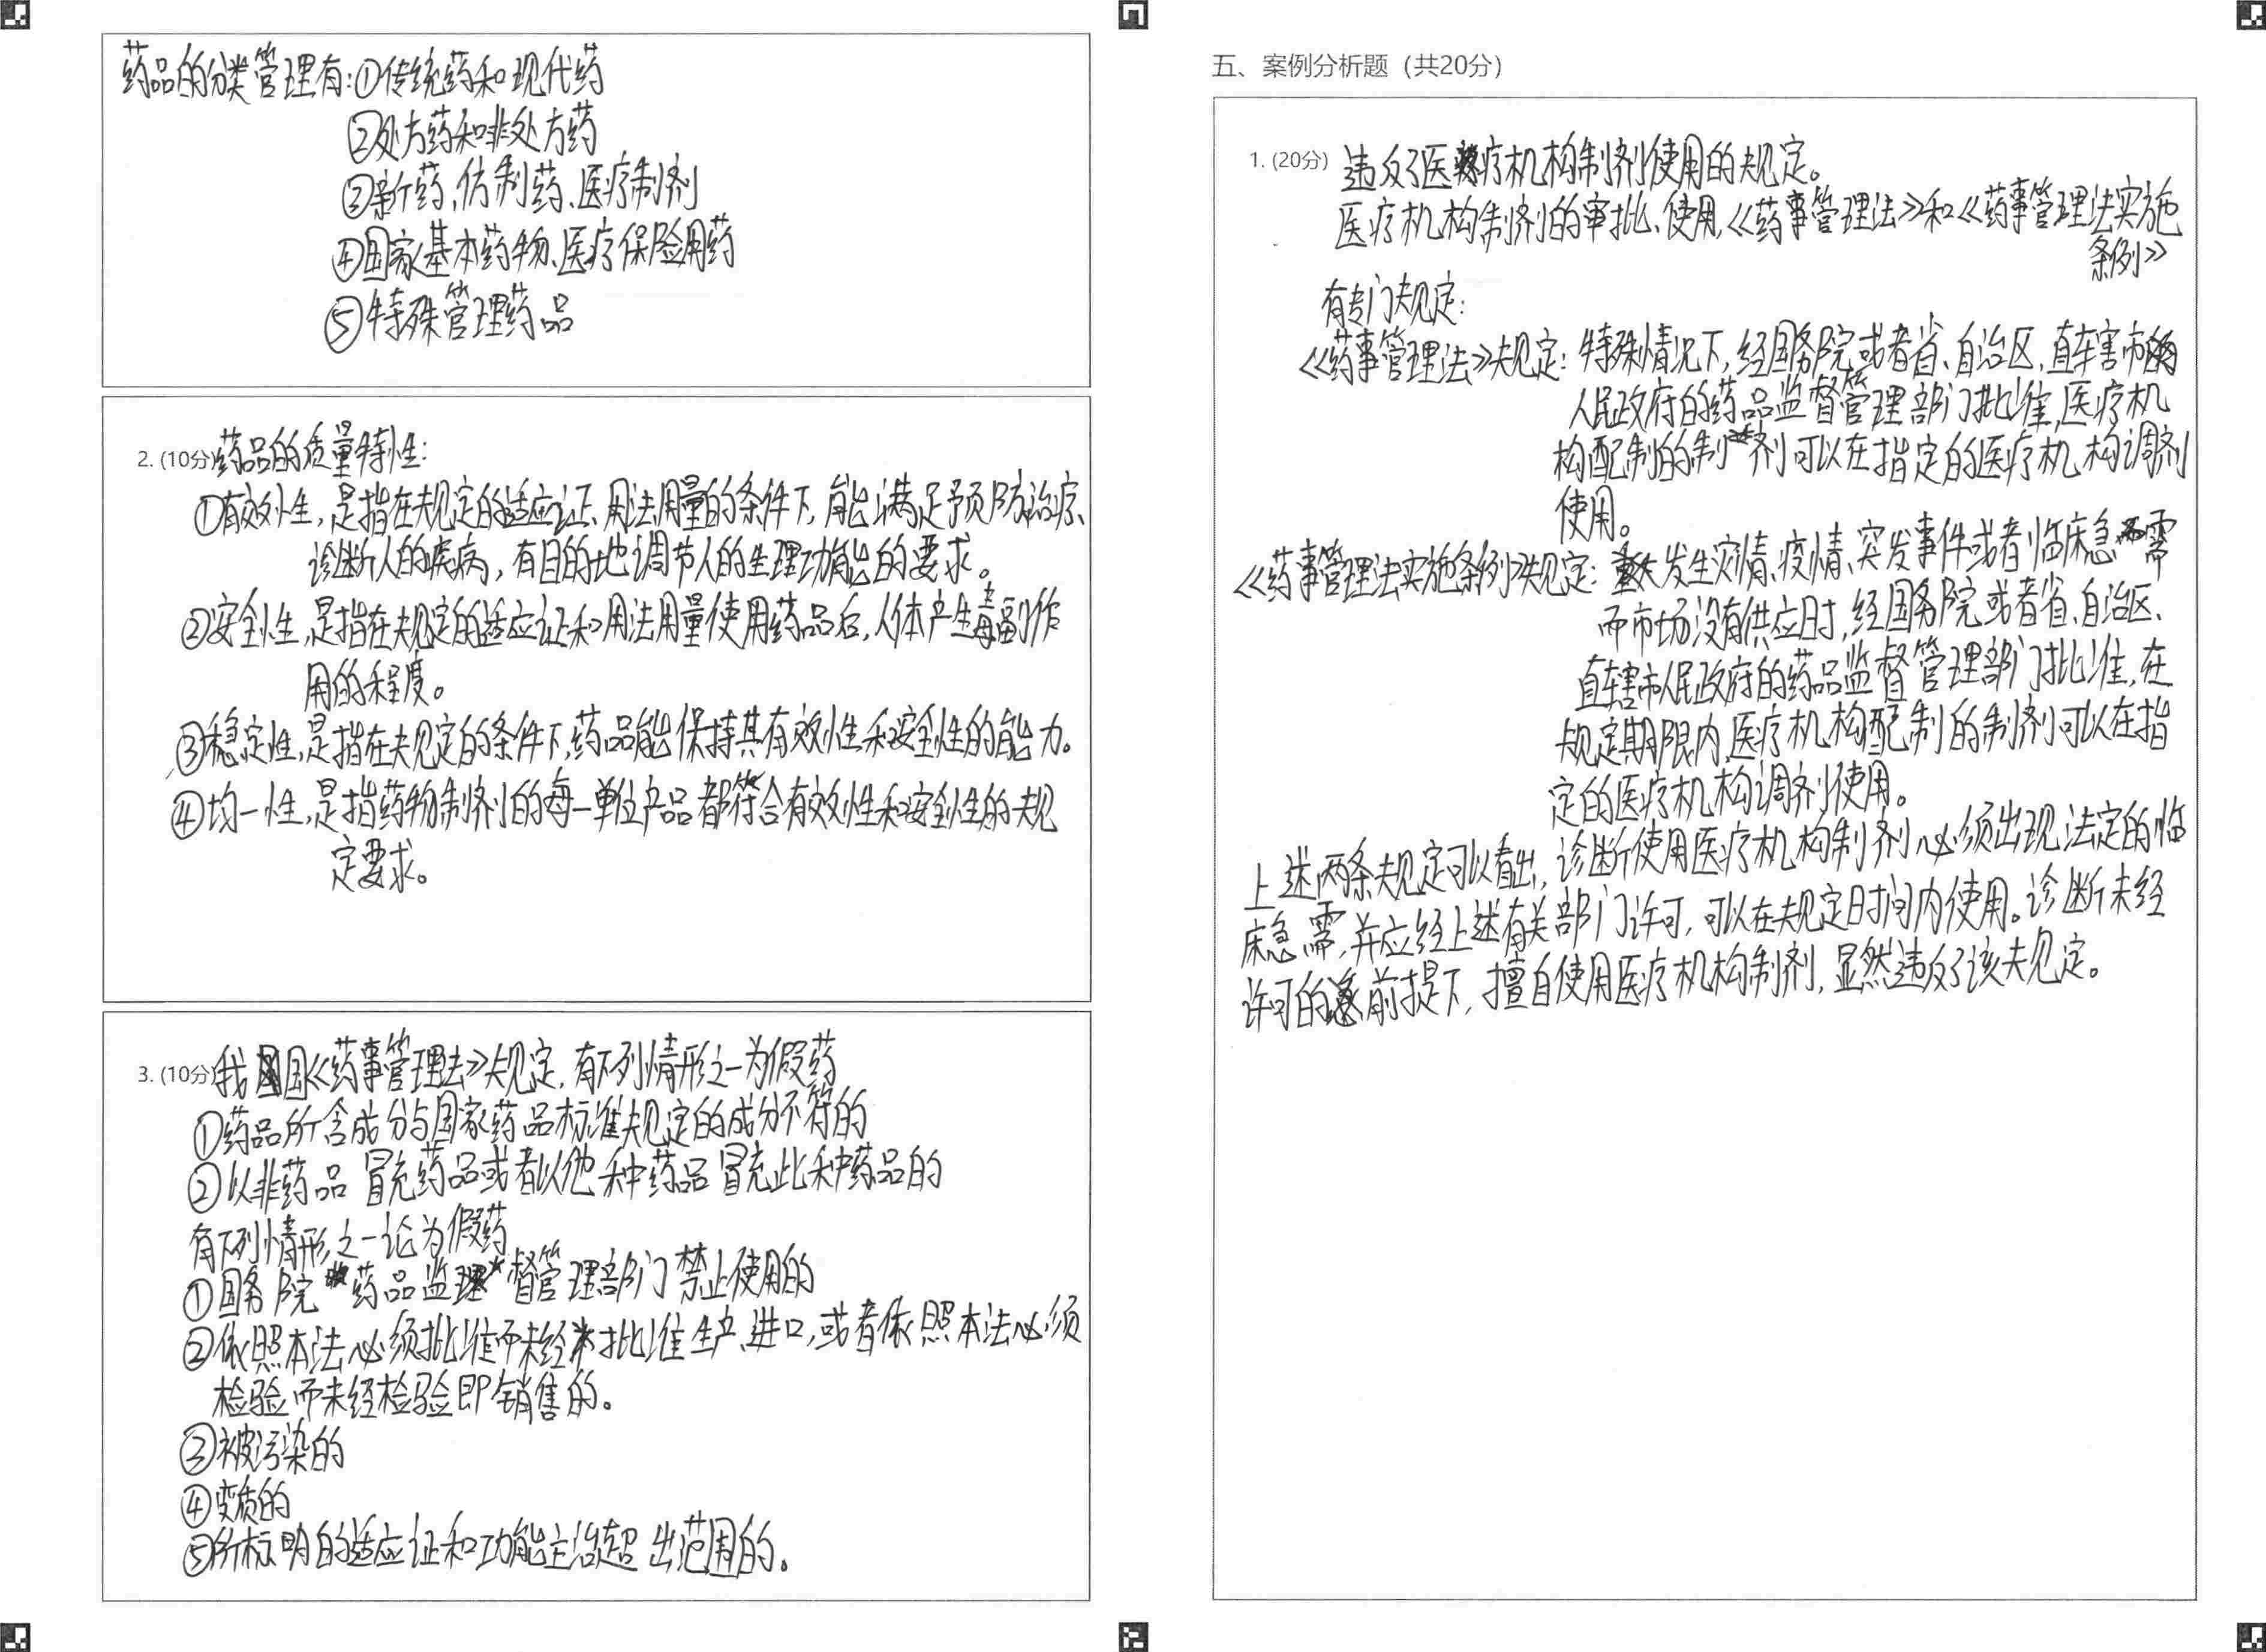 药品的分类管理有:①传统药和现代药
②处方药和非处方药
③新药、仿制药、医疗制剂
④国家基本药物、医疗保险用药
⑤特殊管理药品
2. (10分)药品的质量特性:
①有效性,是指在规定的适应证、用法用量的条件下,能满足预防治疗、
诊断人的疾病,有目的地调节人的生理功能的要求。
②安全性,是指在规定的适应证和用法用量使用药品后,人体产生毒副作
用的程度。
③稳定性,是指在规定的条件下,药品能保持其有效性和安全性的能力。
④均一性,是指药物制剂的每一单位产品都符合有效性和安全性的规
定要求。
3. (10分)我国《药事管理法》规定,有下列情形之一为假药
①药品所含成分与国家药品标准规定的成分不符的
②以非药品冒充药品或者以他种药品冒充此种药品的
有下列情形之一论为假药
①国务院药品监督管理部门禁止使用的
②依照本法必须批准而未经批准生产、进口,或者依照本法必须
检验而未经检验即销售的。
③被污染的
④变质的
⑤所标明的适应证和功能主治超出范围的。
五、案例分析题(共20分)
1. (20分) 违反了医疗机构制剂使用的规定。
医疗机构制剂的审批、使用,《药事管理法》和《药事管理法实施
条例》
有专门规定:
《药事管理法》规定:特殊情况下,经国务院或者省、自治区、直辖市
人民政府的药品监督管理部门批准,医疗机
构配制的制剂可以在指定的医疗机构调剂
使用。
《药事管理法实施条例》规定:发生灾情、疫情、突发事件或者临床急需
而市场没有供应时,经国务院或者省、自治区、
直辖市人民政府的药品监督管理部门批准,在
规定期限内,医疗机构配制的制剂可以在指
定的医疗机构调剂使用。
上述两条规定可以看出,诊断使用医疗机构制剂必须出现法定的临
床急需,并应经上述有关部门许可,可以在规定时间内使用。诊断未经
许可的前提下,擅自使用医疗机构制剂,显然违反了该规定。